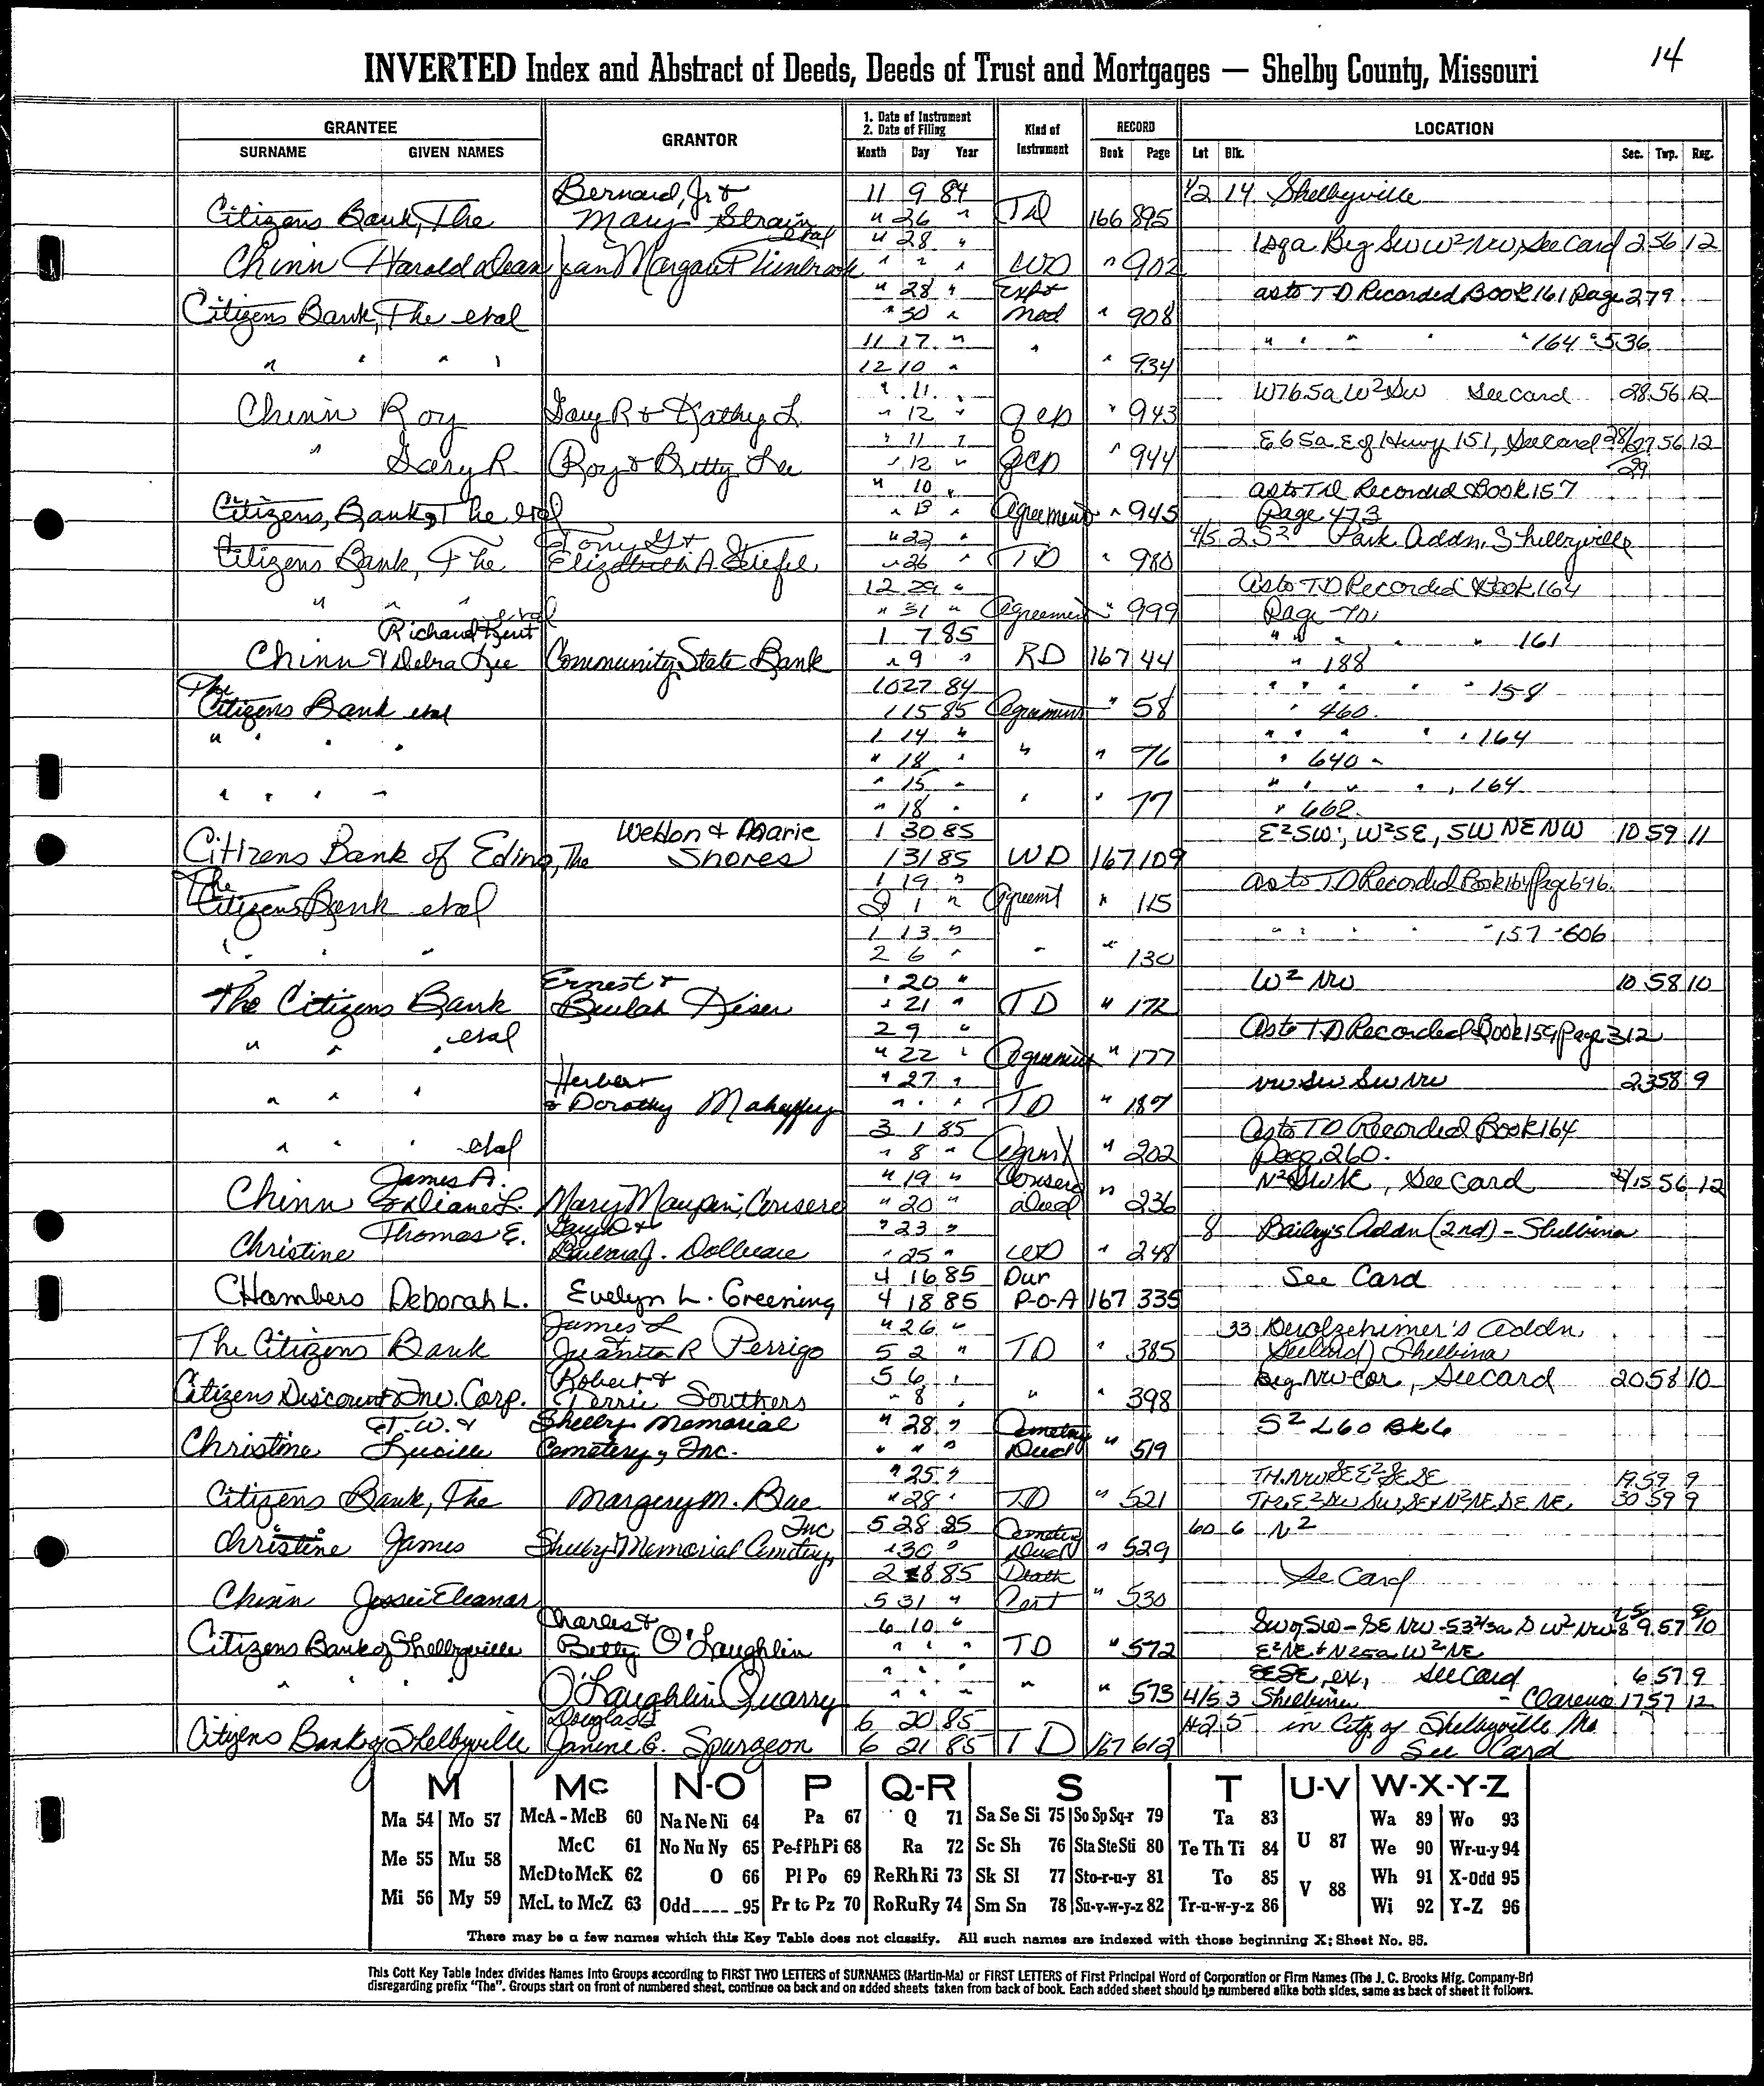 14
INVERTED Index and Abstract of Deeds, Deeds of Trust and Mortgages — Shelby County, Missouri
GRANTEE GRANTOR 1. Date of Instrument 2. Date of Filing Kind of Instrument RECORD LOCATION
SURNAME GIVEN NAMES Month Day Year Book Page Lot Blk. Sec. Twp. Rng.
Bernard, Jr & 11 9 84 1/2 14 Shelbyville
Citizens Bank, The Mary Strain " 26 " TD 166 895
etal " 28 " 1 sqa Beg SW W² NW, See Card 2 56 12
Chinn Harold Dean Jean Margaret " " " WD " 902
" 28 " Ext & as to TD Recorded Book 161 Page 279
Citizens Bank, The etal " 30 " Mod " 908
11 17 " " " " " " 164 " 536
" " " " 12 10 " " 934
" 11 " W76.5a W² SW See Card 28 56 12
Chinn Roy Gary R & Kathy L. " 12 " QCD " 943
" 11 " E 65a E of Hwy 151, See Card 28/27 56 12
" Gary R. Roy & Betty Lee " 12 " QCD " 944 29
" 10 " as to TD Recorded Book 157
Citizens, Bank, The etal " 13 " Agreement " 945 Page 473
Tony G & " 22 " 4/5 2 S² Park Addn. Shelbyville
Citizens Bank, The Elizabeth A. Stiefel " 26 " TD " 980
12 29 " As to TD Recorded Book 164
" " " etal " 31 " Agreement " 999 Page
Richard Kent 1 7 85 " " " " " 161
Chinn & Debra Lee Community State Bank " 9 " RD 167 44 " 188
The 10 27 84 " " " " " 158
Citizens Bank etal 1 15 85 Agreement " 58 " 460.
1 14 " " " " " " 164
" " " " " 18 " " " 76 " 640
" 15 " " " " " " 164
" " " " " 18 " " " 77 " 662.
Weldon & Marie 1 30 85 E² SW; W² SE, SW NE NW 10 59 11
Citizens Bank of Edina, The Shores 1 31 85 WD 167 109
The 1 19 " As to TD Recorded Book 164 Page 696
Citizens Bank etal 2 1 " Agreemt " 115
1 13 " " " " " " 157 " 606
" " " 2 6 " " " 130
Ernest & " 20 " W² NW 10 58 10
The Citizens Bank Beulah Kiser " 21 " TD " 172
2 9 " As to TD Recorded Book 159 Page 312
" " " etal " 22 " Agreement " 177
Herbert " 27 " NW SW SW NW 23 58 9
" " " & Dorothy Mahaffey " " " TD " 187
3 1 85 As to TD Recorded Book 164
" " " etal " 8 " " 202 Page 260.
James A. " 19 " Conserv , See Card 56 12
Chinn & Diane L. Mary Maupin, Conserv " 20 " Deed " 236
Thomas E. Gary D & " 23 " 8 Bailey's Addn (2nd) - Shelbina
Christine Barbara J. Dolbeare " 25 " WD " 248
4 16 85 Dur See Card
CHambers Deborah L. Evelyn L. Greening 4 18 85 P-O-A 167 335
James L " 26 " 33 Dewolzehimer's Addn,
The Citizens Bank Juanita R Perrigo 5 2 " TD " 385 See Card) Shelbina
Robert & 5 6 " Beg. NW Cor, See Card 20 58 10
Citizens Discount & Inv. Corp. Terrie Southers " 8 " " " 398
T.W. & Shelby Memorial " 28 " Cemetery S² L60 Bk6
Christine Lucille Cemetery, Inc. " " " Deed " 519
" 25 " 19 59 9
Citizens Bank, The Margery M. Bue " 28 " TD " 521 30 59 9
Inc 5 28 85 Cemetery 60 6 N²
Christine James Shelby Memorial Cemetery, " 30 " Deed " 529
2 85 Death See Card
Chinn Jessie Eleanor 5 31 " Cert " 530
Charles & 6 10 " 9 57 10
Citizens Bank of Shelbyville Betty O'Laughlin " " " TD " 572 E² NE & N 25a W² NE
" " " " " " SESE, ex, See Card 6 57 9
" " " O'Laughlin Quarry " " " " " 573 4/5 3 Shelbina - Clarence 17 57 12
Douglas & 6 20 85 in City of Shelbyville Mo.
Citizens Bank of Shelbyville Janine C. Spurgeon 6 21 85 TD 167 612 See Card
M Mc N-O P Q-R S T U-V W-X-Y-Z
Ma 54 Mo 57 McA - McB 60 Na Ne Ni 64 Pa 67 Q 71 Sa Se Si 75 So Sp Sq-r 79 Ta 83 Wa 89 Wo 93
McC 61 No Nu Ny 65 Pe-f Ph Pi 68 Ra 72 Sc Sh 76 Sta Ste Sti 80 Te Th Ti 84 U 87 We 90 Wr-u-y 94
Me 55 Mu 58 McD to McK 62 O 66 Pl Po 69 Re Rh Ri 73 Sk Sl 77 Sto-r-u-y 81 To 85 Wh 91 X-Odd 95
Mi 56 My 59 McL to McZ 63 Odd---- -95 Pr to Pz 70 Ro Ru Ry 74 Sm Sn 78 Su-v-w-y-z 82 Tr-u-w-y-z 86 V 88 Wi 92 Y-Z 96
There may be a few names which this Key Table does not classify. All such names are indexed with those beginning X; Sheet No. 95.
This Cott Key Table Index divides Names into Groups according to FIRST TWO LETTERS of SURNAMES (Martin-Ma) or FIRST LETTERS of First Principal Word of Corporation or Firm Names (The J. C. Brooks Mfg. Company-Br)
disregarding prefix "The". Groups start on front of numbered sheet, continue on back and on added sheets taken from back of book. Each added sheet should be numbered alike both sides, same as back of sheet it follows.